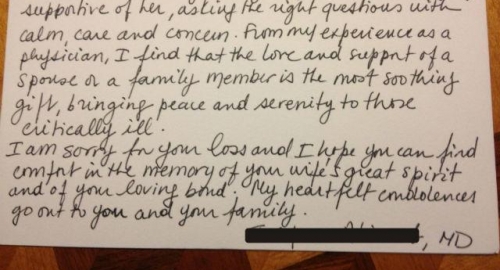 supportive of her, asking the right questions with
calm, care and concern. From my experience as a
physician, I find that the love and support of a
spouse or a family member is the most soothing
gift, bringing peace and serenity to those
critically ill.
I am sorry for your loss and I hope you can find
comfort in the memory of your wife's great spirit
and of your loving bond. My heartfelt condolences
go out to you and your family.
, MD